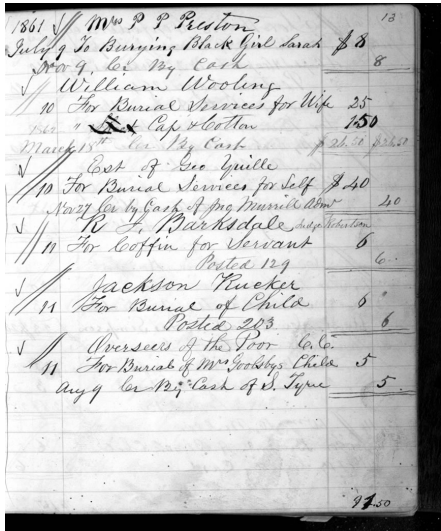 13
1861 Mrs P P Preston
July 9 To Burying Black Girl Sarah $8
Nov 9 Cr By Cash 8
William Wooling
10 For Burial Services for Wife 25
" Cap & Cotton 1.50
March 18th Cr By Cash $26.50 $26.50
Est of Geo
10 For Burial Services for Self $40
Nov 27 Cr by Cash of Jng Murrill Admr 40
Barksdale Judge Robertson
11 For Coffin for Servant 6
Posted 129 6
Jackson Rucker
11 For Burial of Child 6 "
Posted 203 6
Overseers of the Poor C.C.
11 For Burial of Mrs Goolsbys Child 5
Aug 9 Cr By Cash of S. Tyree 5
91.50